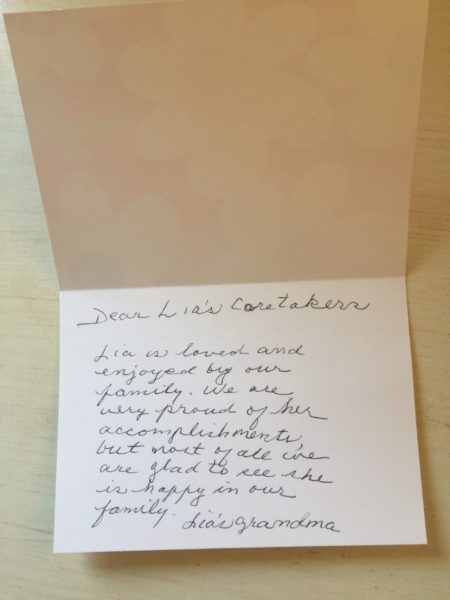 Dear Lia's Caretakers
Lia is loved and
enjoyed by our
family. We are
very proud of her
accomplishments,
but most of all we
are glad to see she
is happy in our
family. Lia's grandma